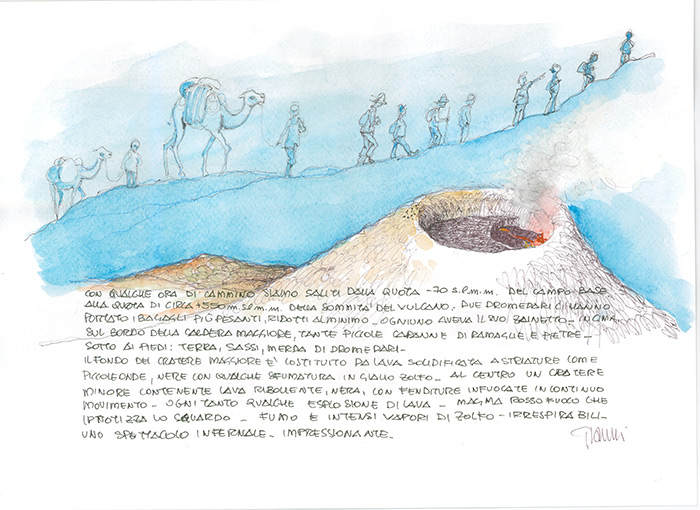 CON QUALCHE ORA DI CAMMINO SIAMO SALITI DALLA QUOTA -70 S.L.M.M. DEL CAMPO-BASE
ALLA QUOTA DI CIRCA +550 M.S.L.M. DELLA SOMMITA' DEL VULCANO. DUE DROMEDARI CI HANNO
PORTATO I BAGAGLI PIÙ PESANTI, RIDOTTI AL MINIMO - OGNIUNO AVEVA IL SUO ZAINETTO - IN CIMA
SUL BORDO DELLA CALDERA MAGGIORE, TANTE PICCOLE CAPANNE DI RAMAGLIE E PIETRE -
SOTTO AI PIEDI: TERRA, SASSI, MERDA DI DROMEDARI -
IL FONDO DEL CRATERE MAGGIORE E' COSTITUITO DA LAVA SOLIDIFICATA A STRIATURE COME
PICCOLE ONDE, NERE CON QUALCHE SFUMATURA IN GIALLO ZOLFO - AL CENTRO UN CRATERE
MINORE CONTENENTE LAVA RIBOLLENTE, NERA, CON FENDITURE INFUOCATE IN CONTINUO
MOVIMENTO - OGNI TANTO QUALCHE ESPLOSIONE DI LAVA - MAGMA ROSSO FUOCO CHE
IPNOTIZZA LO SGUARDO - FUMO E INTENSI VAPORI DI ZOLFO - IRRESPIRABILI -
UNO SPETTACOLO INFERNALE - IMPRESSIONANTE -